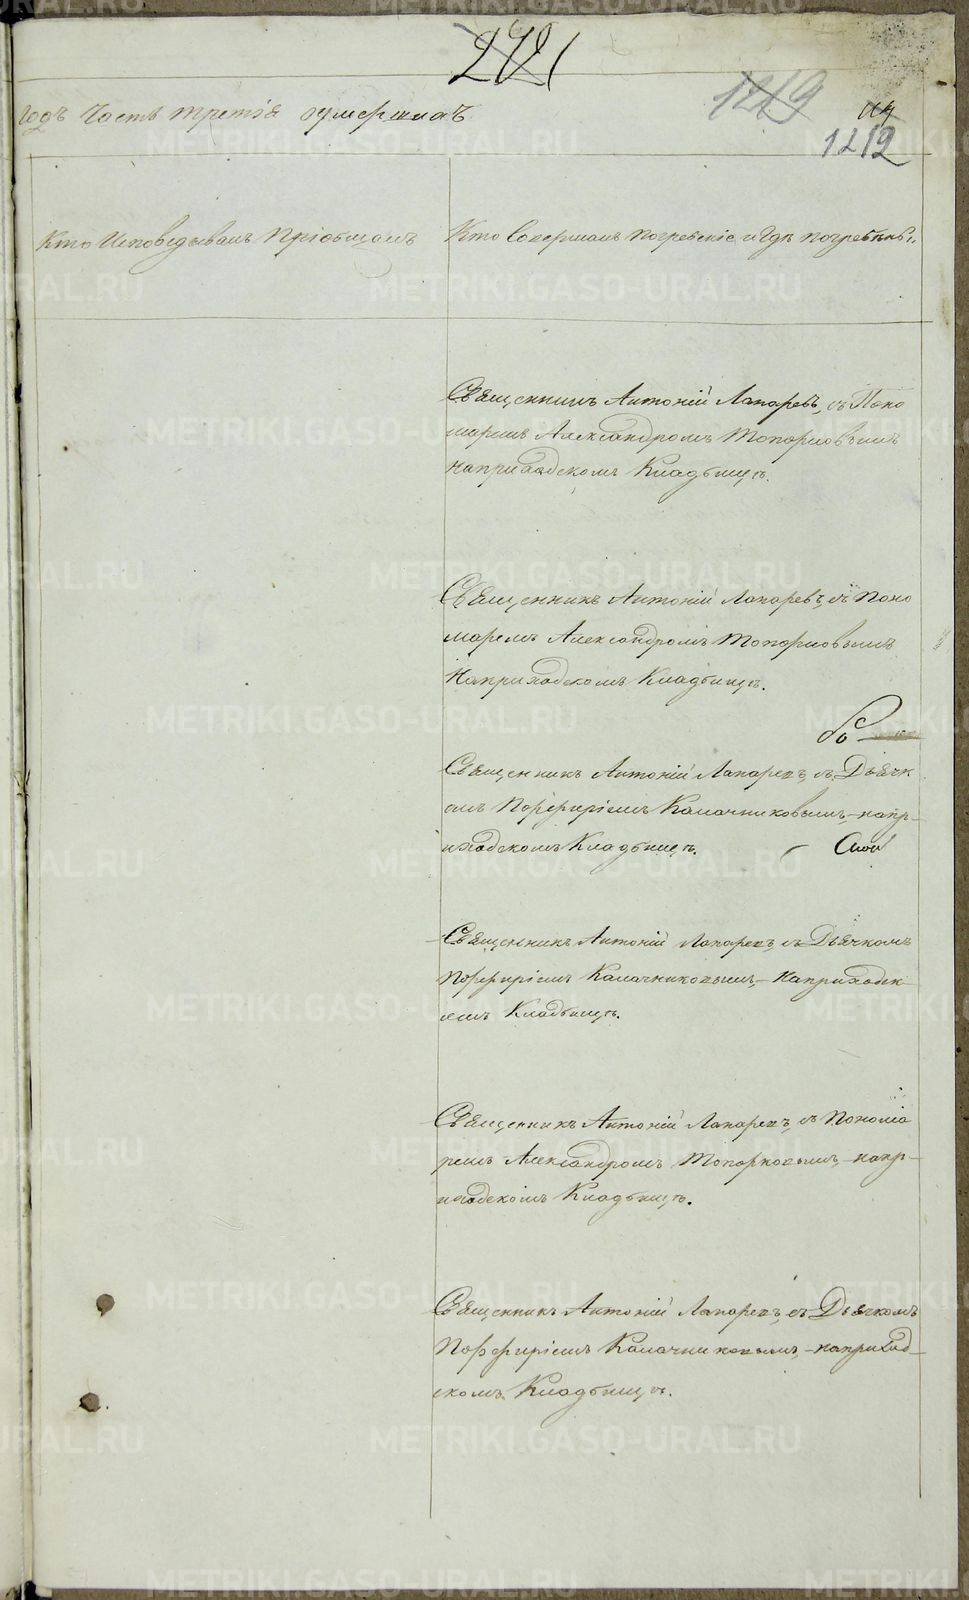 годъ Часть третія умершихъ
1212
Кто Исповѣдывалъ Пріобщалъ
Кто Совершалъ погребеніе и гдѣ погребены
Священникъ Антоній Лапаревъ, съ Поно
маремъ Александромъ Топорковымъ
На приходскомъ Кладбищѣ.
Священникъ Антоній Лапаревъ, съ Поно
маремъ Александромъ Топорковымъ
На приходскомъ Кладбищѣ.
Священникъ Антоній Лапаревъ, съ Дьячк
омъ Порфиріемъ Калачниковымъ, на пр-
иходскомъ Кладбищѣ.
Священникъ Антоній Лапаревъ, съ Дьячкомъ
Порфиріемъ Калачниковымъ, На приходск
омъ Кладбищѣ.
Священникъ Антоній Лапаревъ, съ Понома
ремъ Александромъ Топорковымъ, на пр-
иходскомъ Кладбищѣ.
Священникъ Антоній Лапаревъ, съ Дьячкомъ
Порфиріемъ Калачниковымъ, на приход-
скомъ Кладбищѣ.